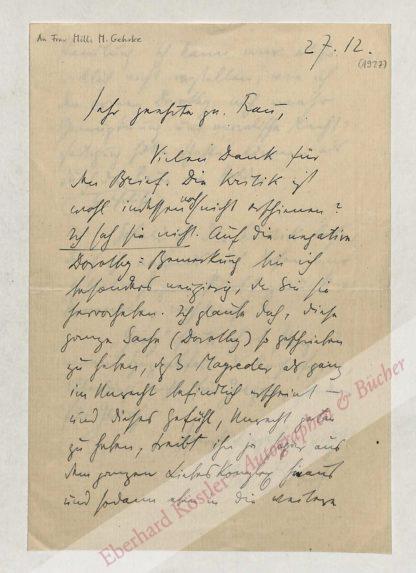 An Frau Milli M. Gehrke
27.12.
(1927)
Sehr geehrte gn. Frau,
Vielen Dank für
den Brief. Die Kritik ist
wohl indessen noch nicht erschienen?
Ich sah sie nicht. Auf die negative
Dorothy = Bemerkung bin ich
besonders neugierig, da Sie sie
hervorheben. Ich glaube doch, diese
ganze Sache (Dorothy) so geschrieben
zu haben, daß als ganz
im Unrecht befindlich erscheint –
und dieses Gefühl, Unrecht
zu haben, treibt ihn ja aus
dem ganzen heraus
und sodann in die weitere
Eberhard Köstler Autographen & Bücher